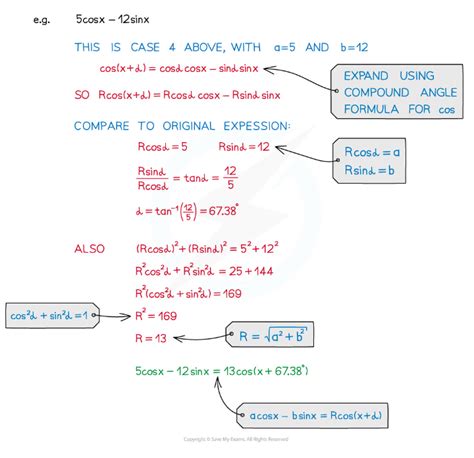 e.g. 5cosx − 12sinx
THIS IS CASE 4 ABOVE, WITH a=5 AND b=12
cos(x+α) = cosα cosx − sinα sinx
SO Rcos(x+α) = Rcosα cosx − Rsinα sinx
EXPAND USING
COMPOUND ANGLE
FORMULA FOR cos
COMPARE TO ORIGINAL EXPESSION:
Rcosα = 5 Rsinα = 12
Rcosα = a
Rsinα = b
Rsinα/Rcosα = tanα = 12/5
α = tan⁻¹(12/5) = 67.38°
ALSO (Rcosα)² + (Rsinα)² = 5² + 12²
R²cos²α + R²sin²α = 25 + 144
R²(cos²α + sin²α) = 169
cos²α + sin²α = 1
R² = 169
R = 13
R = √(a² + b²)
5cosx − 12sinx = 13cos(x + 67.38°)
acosx − bsinx = Rcos(x+α)
Copyright © Save My Exams. All Rights Reserved